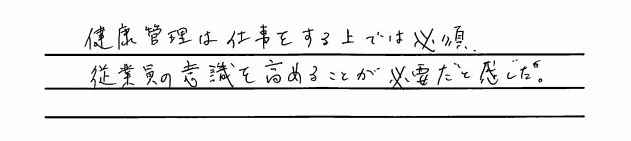 健康管理は仕事をする上では必須.
従業員の意識を高めることが必要だと感じた。